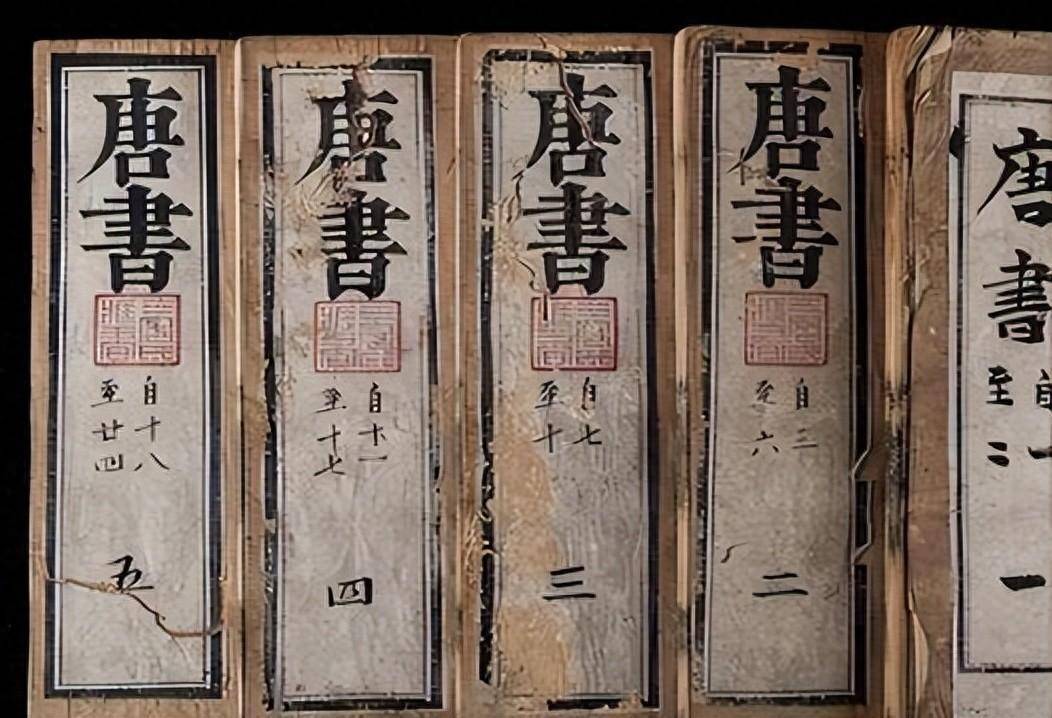 唐書
一
至二
一
唐書
自三
至六
二
唐書
自七
至十
三
唐書
自十一
至十七
四
唐書
自十八
至廿四
五